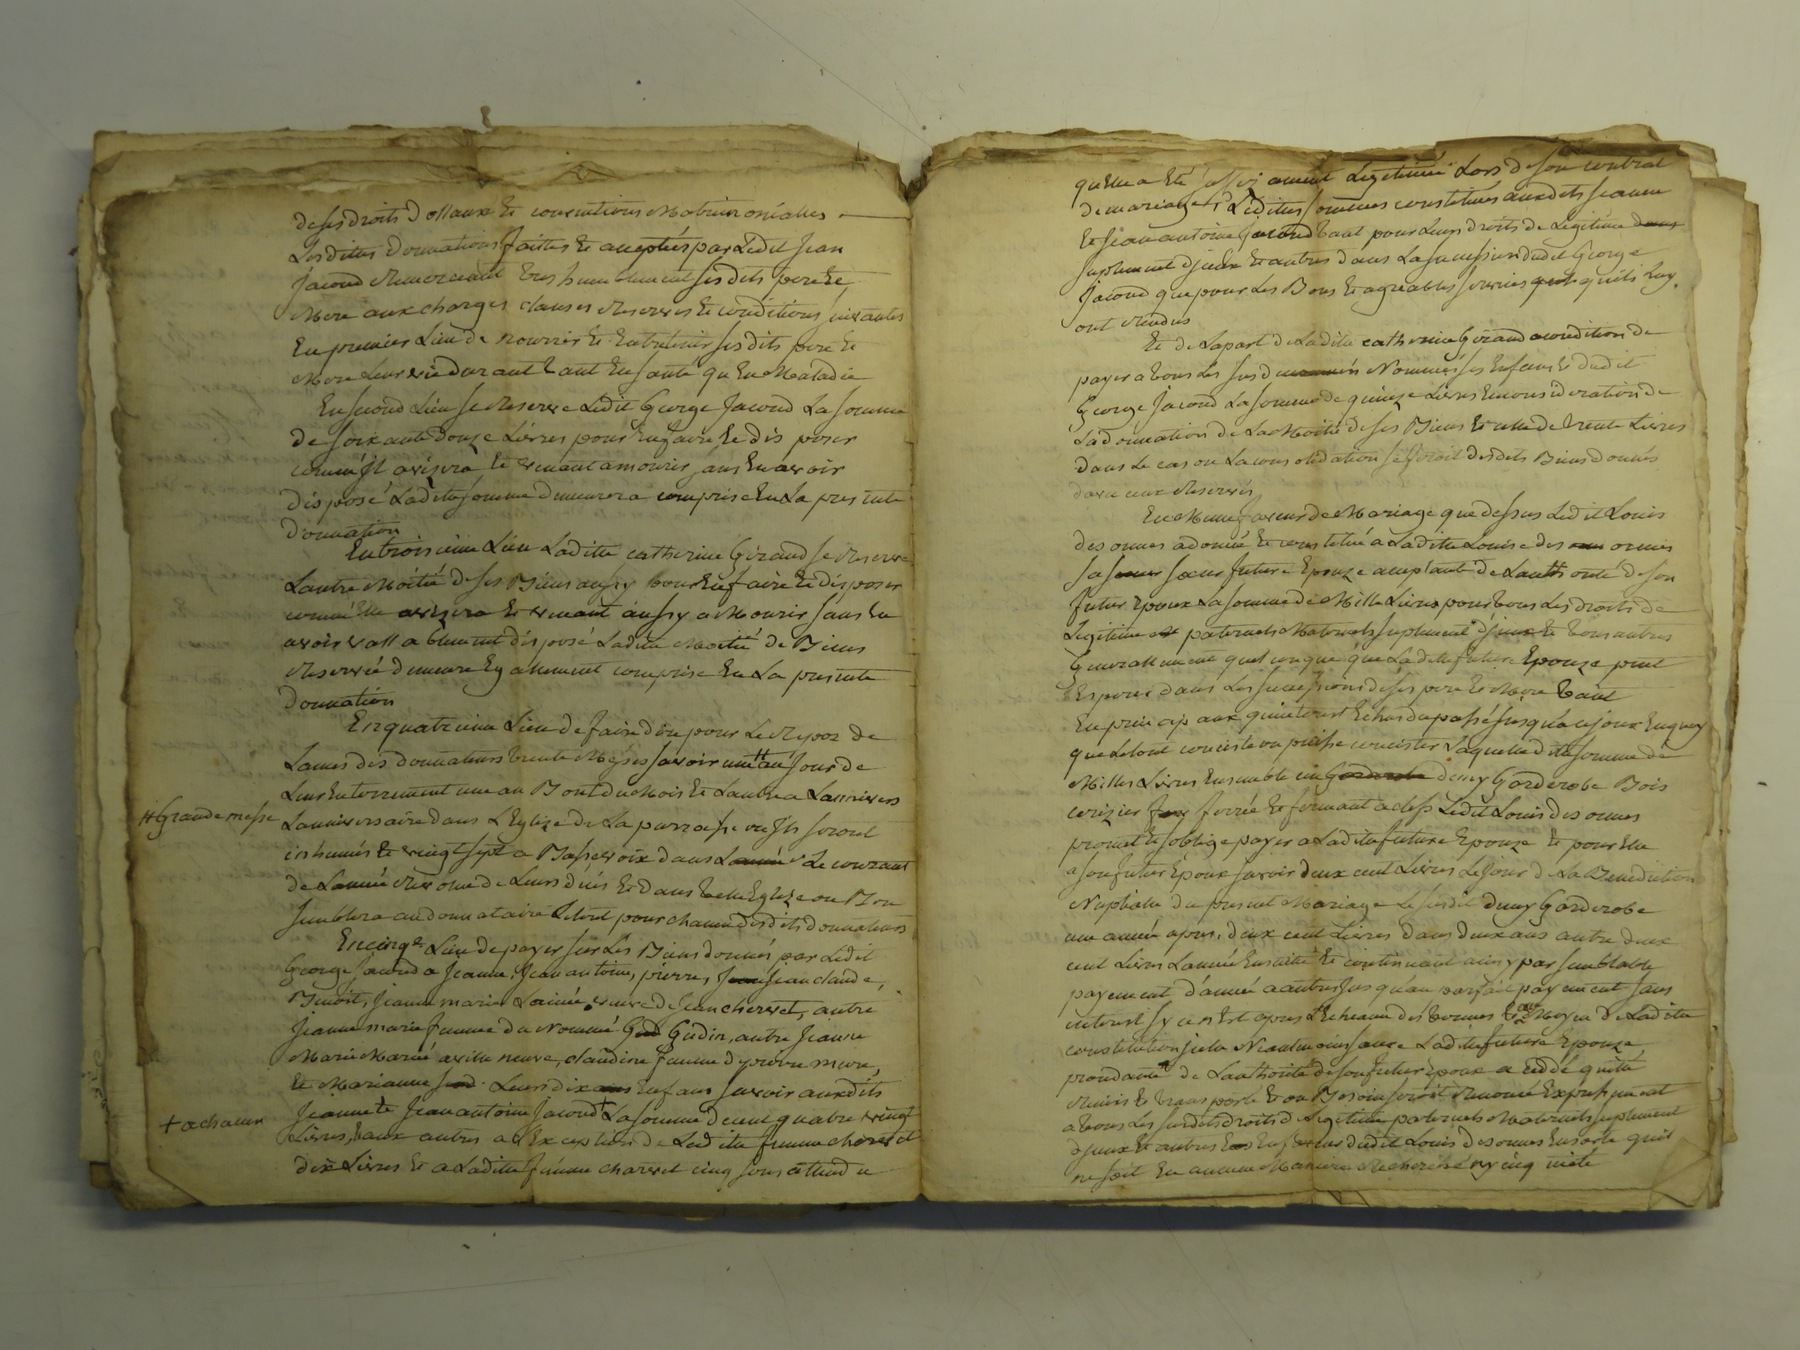 de ses droits dottaux Et conventions Matrimonialles
Lesdittes Donnations faittes Et acceptés par Ledit Jean
Jacoud Remerciant tres humblement sesdits pere Et
Mere aux charges clauses Reserves Et conditions suivantes
En premier Lieu de nourrir Et Entretenir sesdits pere Et
Mere Leur vie durant tant En santé qu'En Maladie
En second Lieu se Reserve Ledit George Jacoud La somme
de soixante douze Livres pour En faire Et disposer
comme Il avisera Et venant a mourir sans En avoir
disposé Ladite somme demeurera comprise En La presente
donnation
En troisieme Lieu Laditte catherine Girand se Reserve
Lautre Moitié de ses Biens aussy pour En faire Et disposer
comme Elle avizera Et venant aussy a Mourir sans En
avoir vallablement disposé Ladite Moitié de Biens
Reservée demeure Egallement comprise En La presente
donnation
En quatrieme Lieu de faire dire pour Le Repoz de
Lames des donnateurs trente Messes savoir une # au Jour de
Leur Enterrement une au Bout du Mois Et Lautre a Lannivers
# Grande messe
Lanniversaire dans L'Eglize de La parroisse ou Ils seront
inhumés Et vingt sept a Basse voix dans Lannée Le courant
de Lannée Revolue de Leurs dués Et dans telle Eglize ou Bon
semblera au donnataire Letout pour chacun desdits donnateurs
En cinq.e Lieu de payer sur Les Biens donnés par Ledit
George Jacoud a Jeanne, Jean antoine, pierre, Jean claude,
Benoit, Jeanne marie Lainée veuve de Jean chervet, autre
Jeanne marie femme du Nommé Gudin, autre Jeanne
Marie Marié a ville neuve, claudine femme d
Et Marianne Leurs dix Enfans savoir auxdits
Jeanne Et Jean antoine Jacoud + La somme de cent quatre vingt
+ a chacun
Livres, Et aux autres a L'Exception de Ladite femme chervet
dix Livres Et a Ladite femme charvet cinq sous attendu
quelle a Eté suffisament Legitimée Lors de son contrat
de mariage, Lesdittes sommes constituées auxdits Jeanne
Et Jean antoine Jacoud tant pour Leurs droits de Legitime
suplement d'Iceux Et autres dans La succession dudit George
Jacoud que pour Les Bons Et agreables services quils Luy
ont Rendus
Et de La part de Ladite catherine Girand a condition de
payer a tous Les susd Nommés ses Enfans Et dudit
George Jacoud La somme de quinze Livres En consideration de
La donnation de La Moitié de ses Biens Et celle de trente Livres
dans Le cas ou La consolidation se feroit desdits Biens donnés
davec ceux Reservés
En Meme faveur de Mariage que dessus Ledit Louis
desormes a donné Et constitué a Laditte Louise desormes
sa soeur future Epouze acceptante de Lauthorité de son
futur Epoux La somme de Mille Livres pour tous Les droits de
Legitime paternels Maternels suplement d'Iceux Et tous autres
Generallement quelconque que Ladite future Epouze peut
Esperer dans Les successions de ses pere Et Mere tant
En principaux quinterest Echus du passé Jusqua ce jour En quoy
que Letout conciste ou puisse concister Laquelle ditte somme de
Milles Livres Ensemble un demy Garderobe Bois
cerizier ferrée Et fermant a clefs Ledit Louis desormes
promet Et soblige payer a Laditte future Epouze Et pour Elle
a son futur Epoux savoir deux cent Livres Le jour de La Benediction
Nuptialle du present Mariage Le susdit demy Garderobe
une année apres, deux cent Livres dans deux ans autre deux
cent Livres Lannée Ensuitte Et continuant ainsy par semblable
payement d'année a autres Jusquau parfait payement sans
interest sy ce n'Est apres L'Echeance des termes Et au Moyen de Ladite
constitution icelle Neantmoins avec Ladite future Epouze
procedante de Lauthorité de son futur Epoux a ceddé quitté
Remis Et transporté Et ou Besoin seroit Renoncé Expressement
a tous Les susdits droits de Legitime paternels Maternels suplement
d'Iceux Et autres En faveur dudit Louis desormes En sorte quil
ne soit En aucune Maniere Recherché ny inquieté